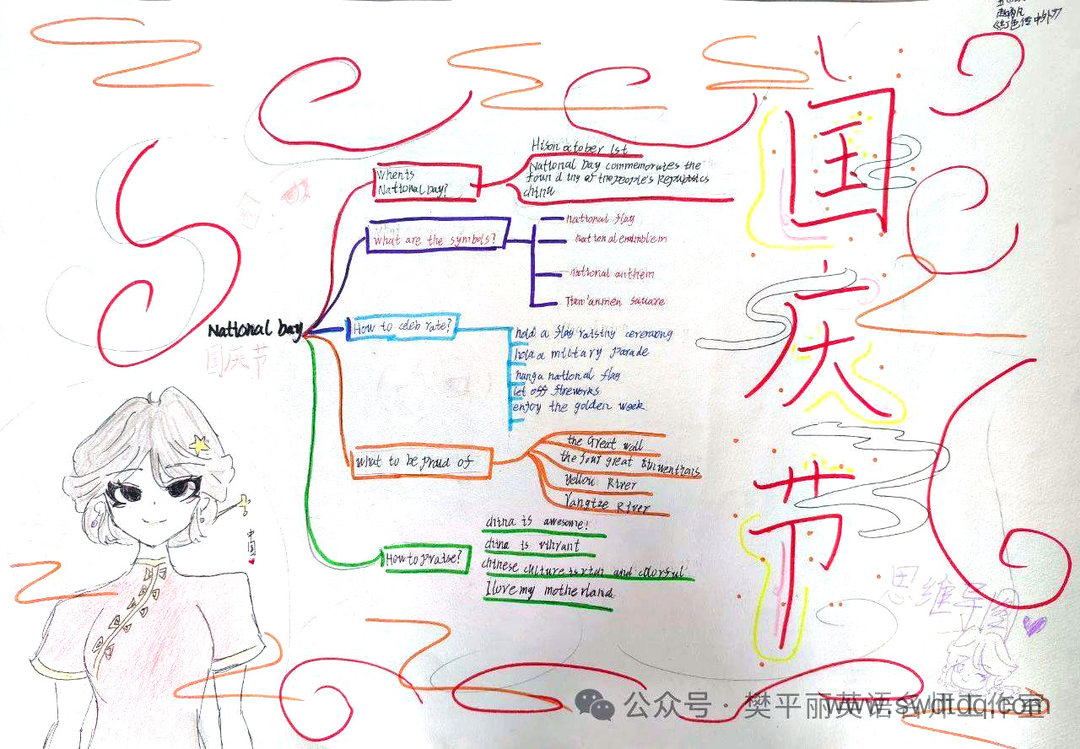 国庆节
When is
National Day?
National Day commemorates the
china
What are the symbols?
National flag
National emblem
National anthem
Tian'anmen square
National Day
国庆节
How to celebrate?
hold a flag raising ceremony
hold a military parade
hang a national flag
let off fireworks
enjoy the golden week
What to be proud of
the Great wall
the four great
Yellow River
Yangtze River
How to praise?
china is awesome!
china is vibrant
chinese culture is rich and colorful
I love my motherland
中国
思维导图
公众号·樊平丽英语名师工作室
www.swdtdq.com